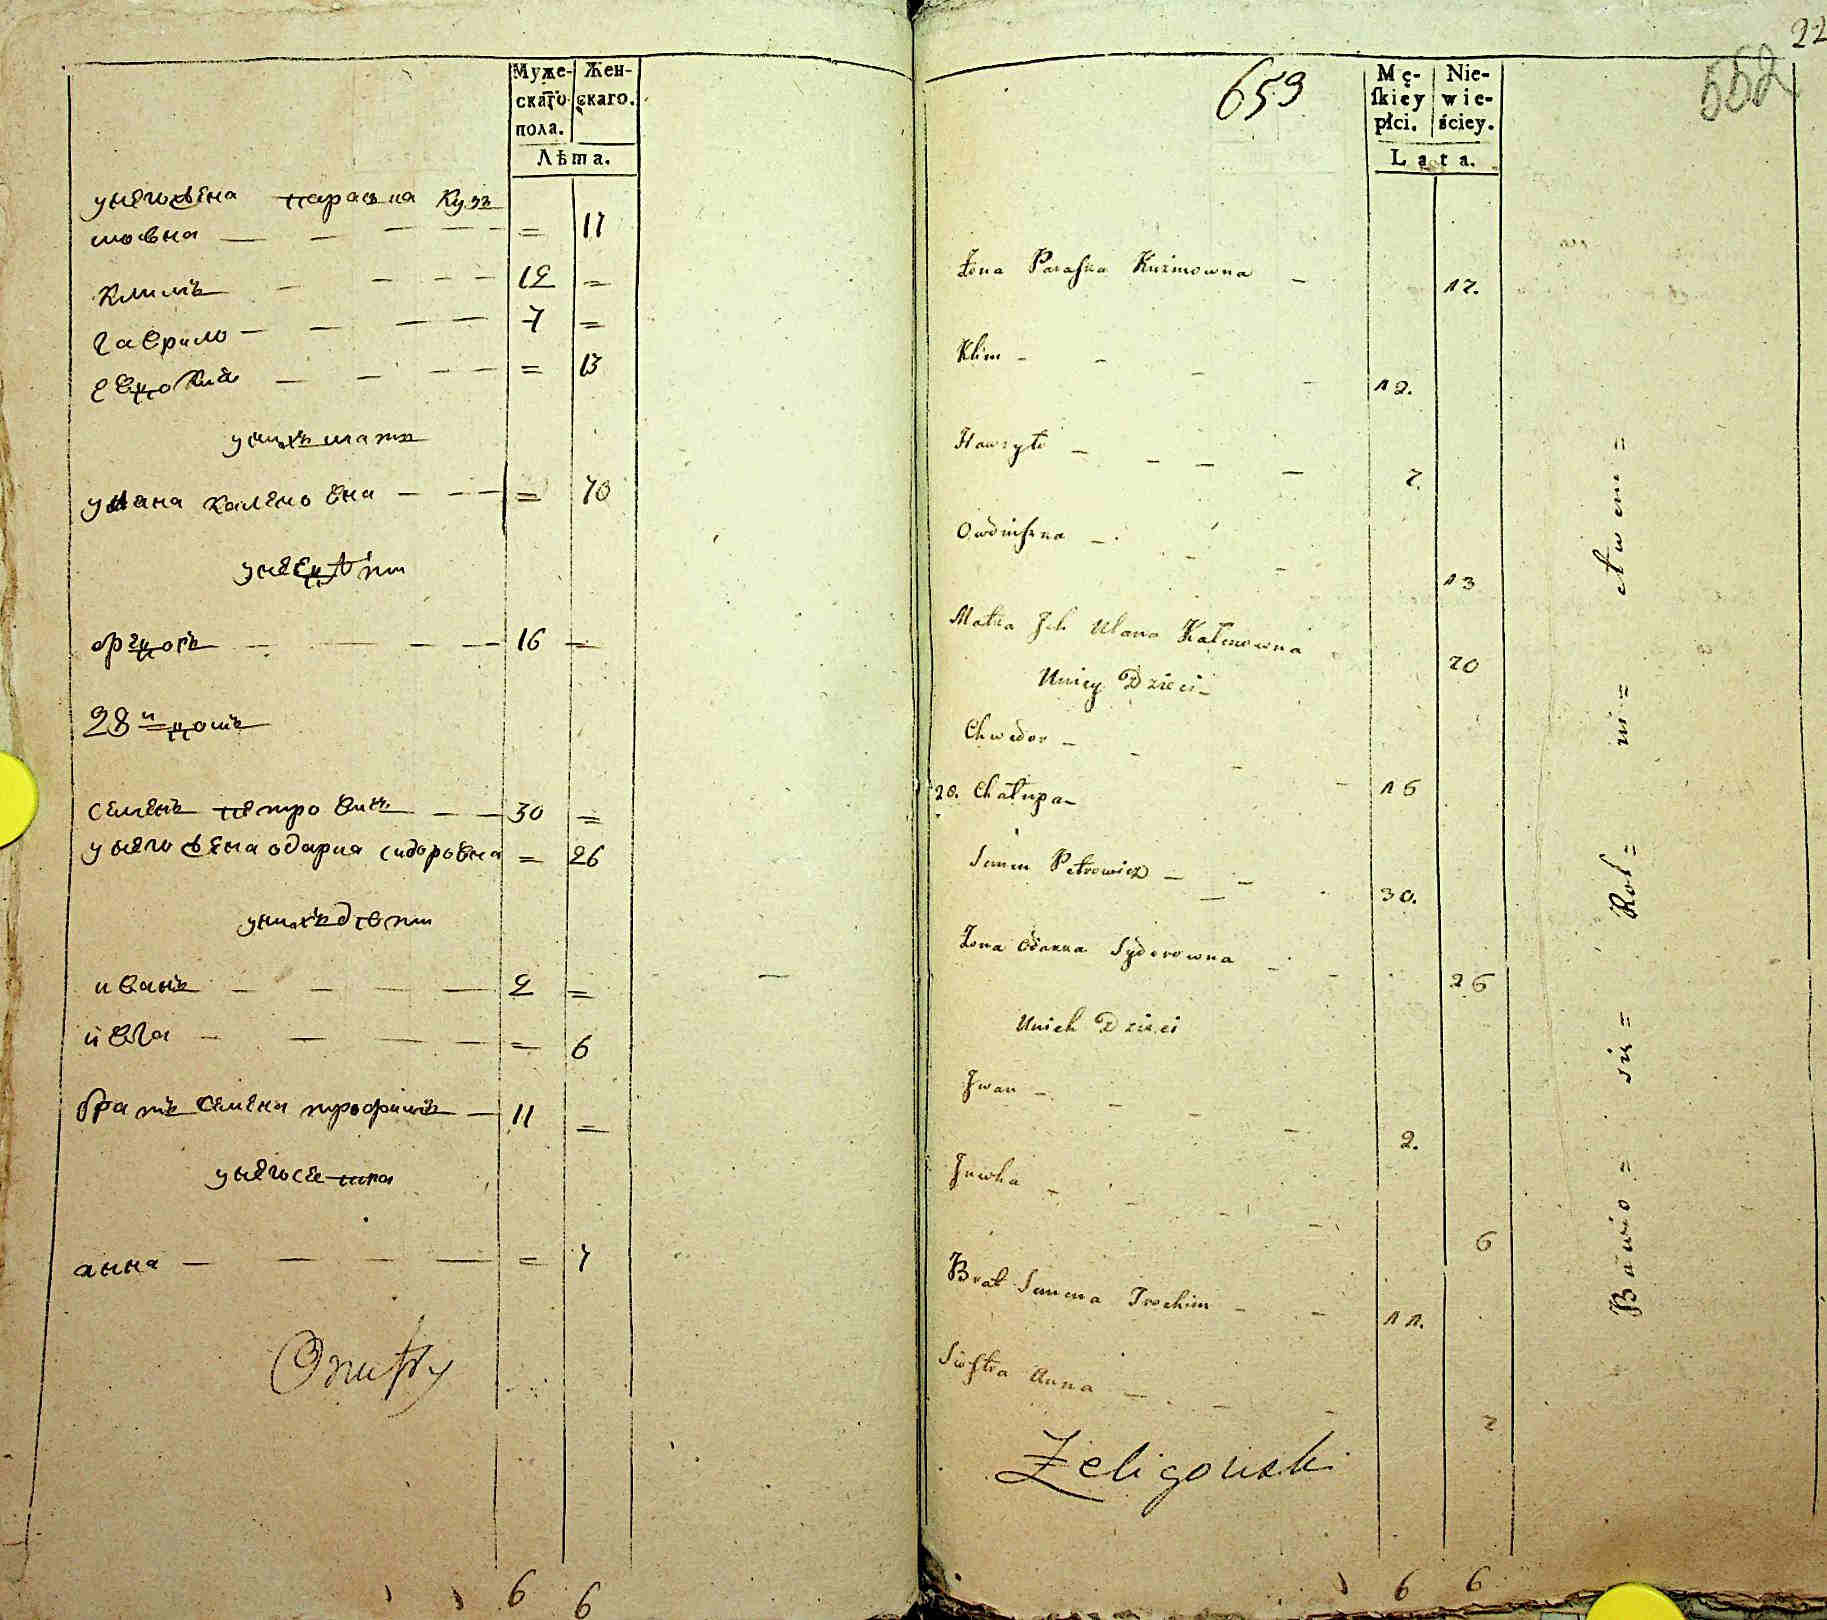 Муже-
скаго
пола.
Жен-
скаго.
Лѣта.
у него жена параска Куз
мовна — — — — = 17
климъ — — — 12 =
гаврило — — — — 7 =
евдокия — — — — = 13
у нихъ мати
уляна калемовна — — — = 70
у нее дѣти
ѳедоръ — — — — 16 =
28 й домъ
семенъ петровичъ — — 30 =
у него жена одарка сидоровна = 26
у нихъ дѣти
иванъ — — — — 2 =
ивга — — — — — = 6
братъ семена трофимъ — 11 =
у него сестра
анна — — — — = 7
6 6
22
552
653
Mę-
skiey
płci.
Nie-
wie-
ściey.
Lata.
Żona Paraska Kuźmowna — 17.
Klim — — — — 12.
Hawryło — — — — — 7.
Owdiuszka — — — 13
Matka Ich Ulana Kalenowna 70
Uniey Dzieci —
Chwedor — — — — 16
28. Chałupa —
Semen Petrowicz — — — 30.
Żona Odarka Sydorowna — — 26
Unich Dzieci
Iwan — — — — 2.
Iewha — — — — — 6
Brat Semena Trochim — — 11.
Siostra Anna — — — 7
Żeligowski
6 6
Bawio = się = Rol = ni = ctwem =